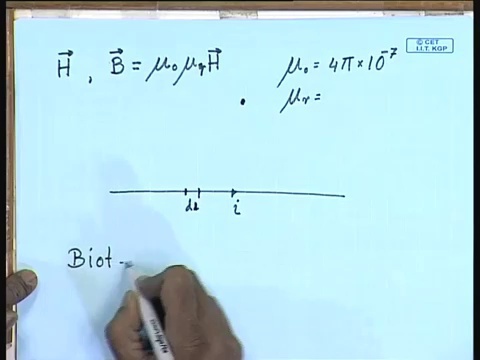 © CET
I.I.T. KGP
H⃗ , B⃗ = μ₀ μᵣ H⃗ μ₀ = 4π × 10⁻⁷
μᵣ =
dl i
Biot -